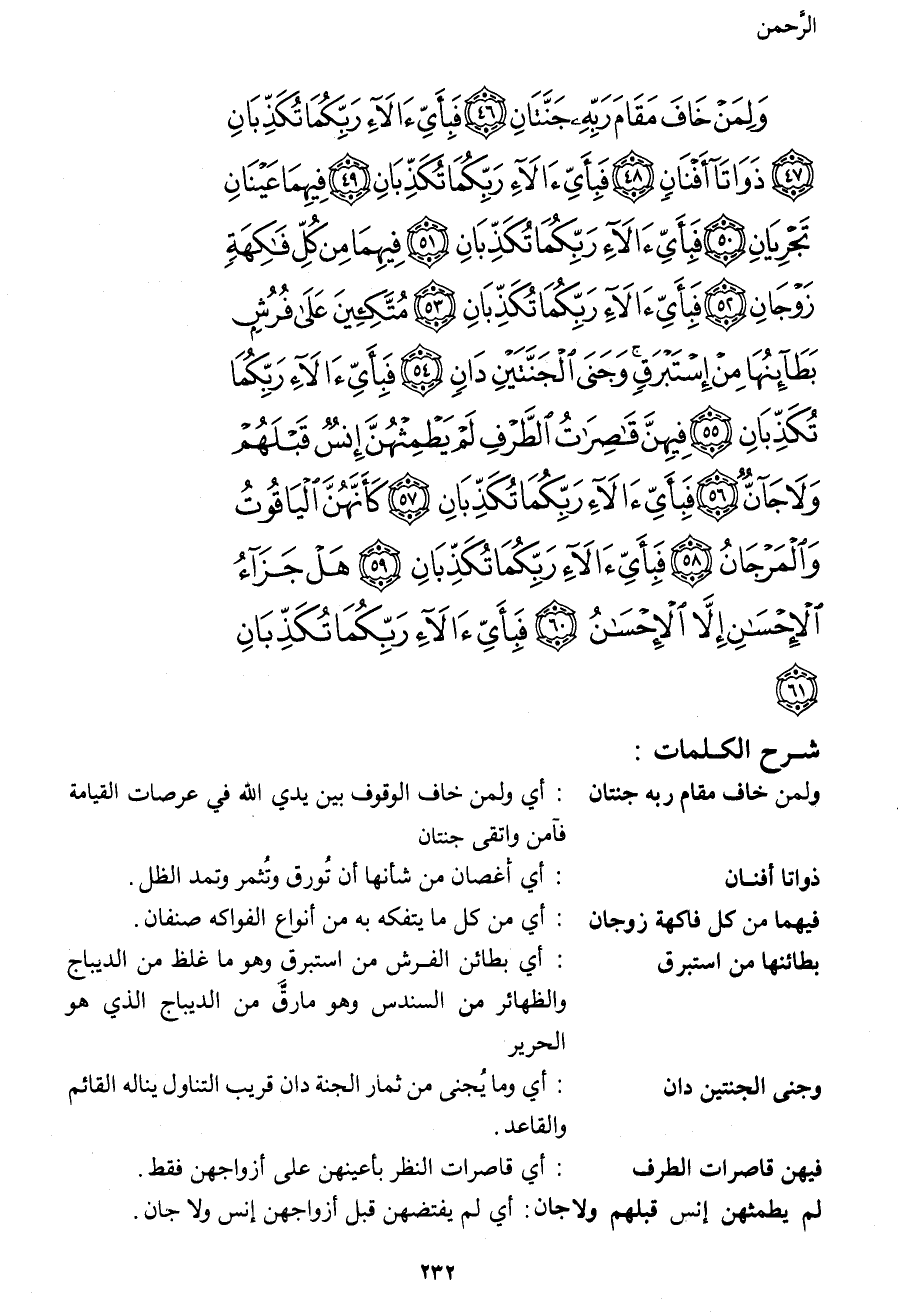 الرَّحمن
وَلِمَنْ خَافَ مَقَامَ رَبِّهِۦ جَنَّتَانِ ٤٦ فَبِأَيِّ ءَالَآءِ رَبِّكُمَا تُكَذِّبَانِ
٤٧ ذَوَاتَآ أَفْنَانٍ ٤٨ فَبِأَيِّ ءَالَآءِ رَبِّكُمَا تُكَذِّبَانِ ٤٩ فِيهِمَا عَيْنَانِ
تَجْرِيَانِ ٥٠ فَبِأَيِّ ءَالَآءِ رَبِّكُمَا تُكَذِّبَانِ ٥١ فِيهِمَا مِن كُلِّ فَٰكِهَةٍ
زَوْجَانِ ٥٢ فَبِأَيِّ ءَالَآءِ رَبِّكُمَا تُكَذِّبَانِ ٥٣ مُتَّكِـِٔينَ عَلَىٰ فُرُشٍ
بَطَآئِنُهَا مِنْ إِسْتَبْرَقٍ ۚ وَجَنَى ٱلْجَنَّتَيْنِ دَانٍ ٥٤ فَبِأَيِّ ءَالَآءِ رَبِّكُمَا
تُكَذِّبَانِ ٥٥ فِيهِنَّ قَٰصِرَٰتُ ٱلطَّرْفِ لَمْ يَطْمِثْهُنَّ إِنسٌ قَبْلَهُمْ
وَلَا جَآنٌّ ٥٦ فَبِأَيِّ ءَالَآءِ رَبِّكُمَا تُكَذِّبَانِ ٥٧ كَأَنَّهُنَّ ٱلْيَاقُوتُ
وَٱلْمَرْجَانُ ٥٨ فَبِأَيِّ ءَالَآءِ رَبِّكُمَا تُكَذِّبَانِ ٥٩ هَلْ جَزَآءُ
ٱلْإِحْسَٰنِ إِلَّا ٱلْإِحْسَٰنُ ٦٠ فَبِأَيِّ ءَالَآءِ رَبِّكُمَا تُكَذِّبَانِ
٦١
شرح الكلمات :
ولمن خاف مقام ربه جنتان : أي ولمن خاف الوقوف بين يدي الله في عرصات القيامة
فآمن واتقى جنتان
ذواتا أفنان : أي أغصان من شأنها أن تُورق وتُثمر وتمد الظل.
فيهما من كل فاكهة زوجان : أي من كل ما يتفكه به من أنواع الفواكه صنفان.
بطائنها من استبرق : أي بطائن الفرش من استبرق وهو ما غلظ من الديباج
والظهائر من السندس وهو مارقَّ من الديباج الذي هو
الحرير
وجنى الجنتين دان : أي وما يُجنى من ثمار الجنة دان قريب التناول يناله القائم
والقاعد.
فيهن قاصرات الطرف : أي قاصرات النظر بأعينهن على أزواجهن فقط.
لم يطمثهن إنس قبلهم ولاجان: أي لم يفتضهن قبل أزواجهن إنس ولا جان.
٢٣٢